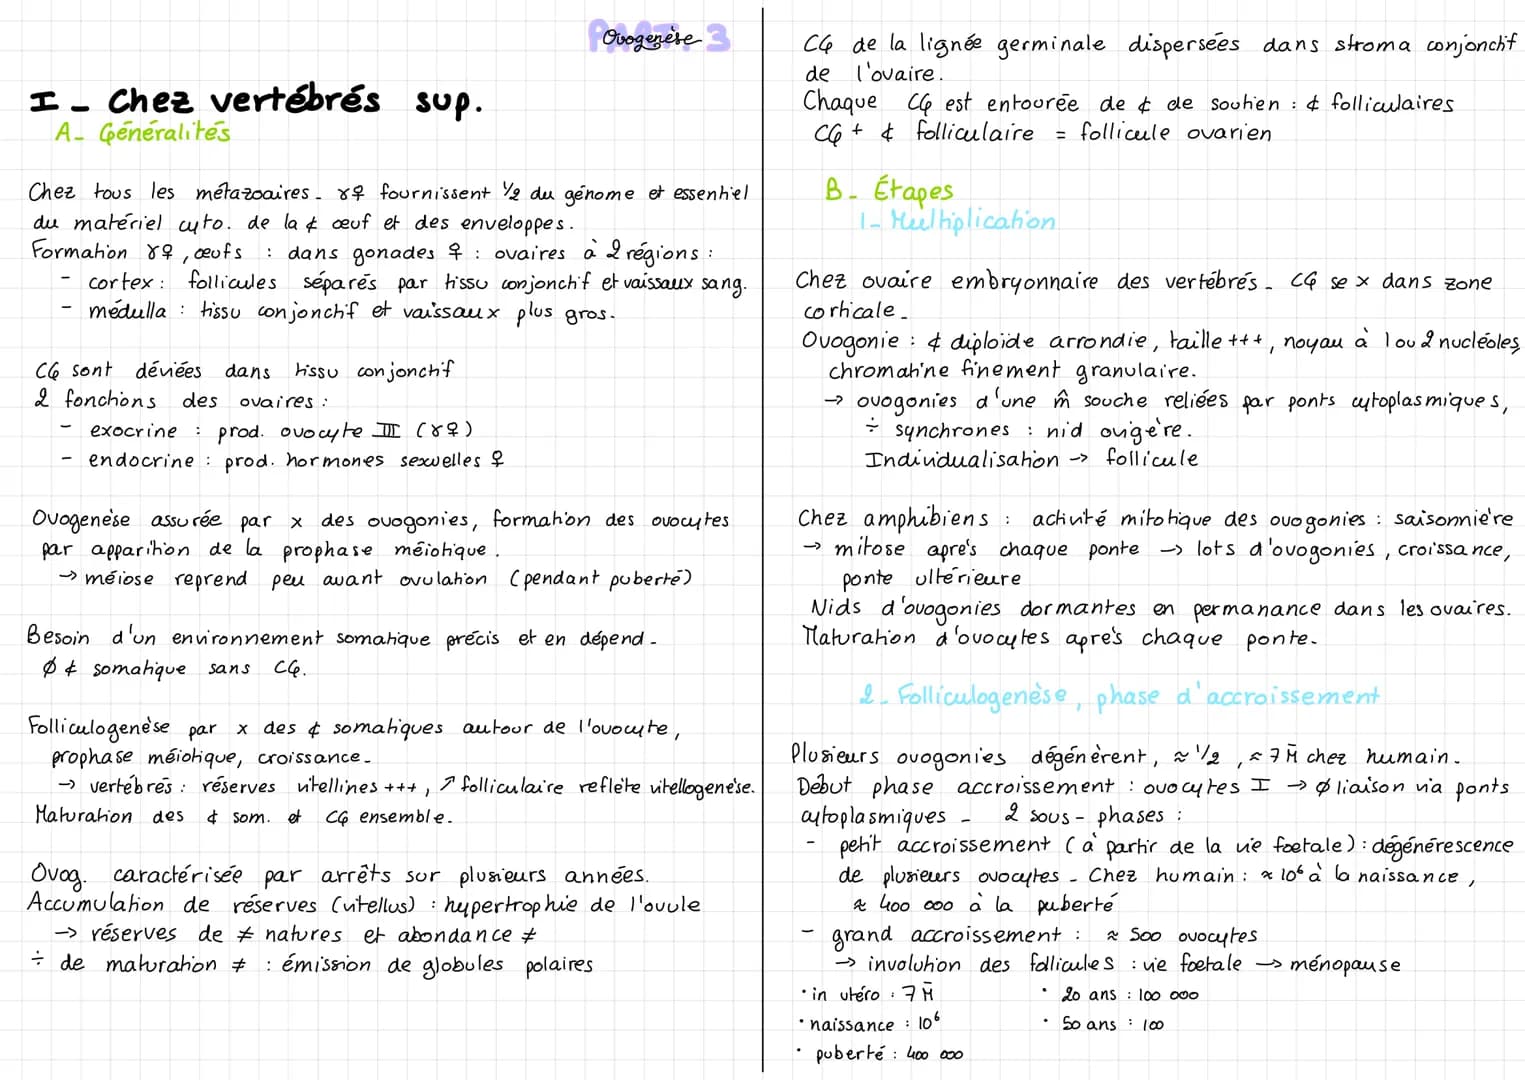 PART. 3
Ovogenèse
I - Chez vertébrés sup.
A- Généralités
Chez tous les métazoaires - ɣ♀ fournissent 1/2 du génome et essentiel
du matériel cyto. de la ¢ œuf et des enveloppes.
Formation ɣ♀, œufs : dans gonades ♀ : ovaires à 2 régions :
- cortex : follicules séparés par tissu conjonctif et vaissaux sang.
- médulla : tissu conjonctif et vaissaux plus gros.
CG sont déviées dans tissu conjonctif
2 fonctions des ovaires :
- exocrine : prod. ovocyte III (ɣ♀)
- endocrine : prod. hormones sexuelles ♀
Ovogenèse assurée par x des ovogonies, formation des ovocytes
par apparition de la prophase méiotique.
→ méiose reprend peu avant ovulation (pendant puberté)
Besoin d'un environnement somatique précis et en dépend -
Ø ¢ somatique sans CG.
Folliculogenèse par x des ¢ somatiques autour de l'ovocyte,
prophase méiotique, croissance -
→ vertébrés : réserves vitellines +++, ↗ folliculaire reflète vitellogenèse.
Maturation des ¢ som. et CG ensemble -
Ovog. caractérisée par arrêts sur plusieurs années.
Accumulation de réserves (vitellus) : hypertrophie de l'ovule
→ réserves de ≠ natures et abondance ≠
÷ de maturation ≠ : émission de globules polaires
CG de la lignée germinale dispersées dans stroma conjonctif
de l'ovaire.
Chaque CG est entourée de ¢ de soutien : ¢ folliculaires
CG + ¢ folliculaire = follicule ovarien
B - Étapes
1 - Multiplication
Chez ovaire embryonnaire des vertébrés - CG se x dans zone
corticale -
Ovogonie : ¢ diploïde arrondie, taille +++, noyau à 1 ou 2 nucléoles,
chromatine finement granulaire.
→ ovogonies d'une m̂ souche reliées par ponts cytoplasmiques,
÷ synchrones : nid ovigère.
Individualisation → follicule
Chez amphibiens : activité mitotique des ovogonies : saisonnière
→ mitose après chaque ponte → lots d'ovogonies, croissance,
ponte ultérieure
Nids d'ovogonies dormantes en permanance dans les ovaires.
Maturation d'ovocytes après chaque ponte -
2 - Folliculogenèse, phase d'accroissement
Plusieurs ovogonies dégénèrent, ≈ 1/2, ≈ 7 M̄ chez humain -
Début phase accroissement : ovocytes I → Ø liaison via ponts
cytoplasmiques - 2 sous-phases :
- petit accroissement (à partir de la vie foetale) : dégénérescence
de plusieurs ovocytes - Chez humain : ≈ 10⁶ à la naissance,
≈ 400 000 à la puberté
- grand accroissement : ≈ 500 ovocytes
→ involution des follicules : vie foetale → ménopause
• in utéro : 7 M̄
• naissance : 10⁶
• puberté : 400 000
• 20 ans : 100 000
• 50 ans : 100